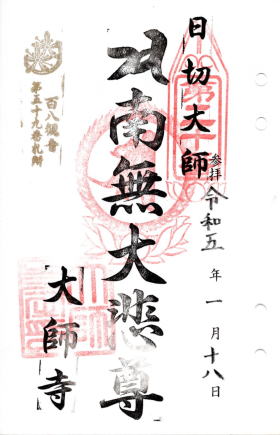 日切大師
参拝 令和五年一月十八日
南無大悲尊
大師寺
百八観音
第五十九番札所